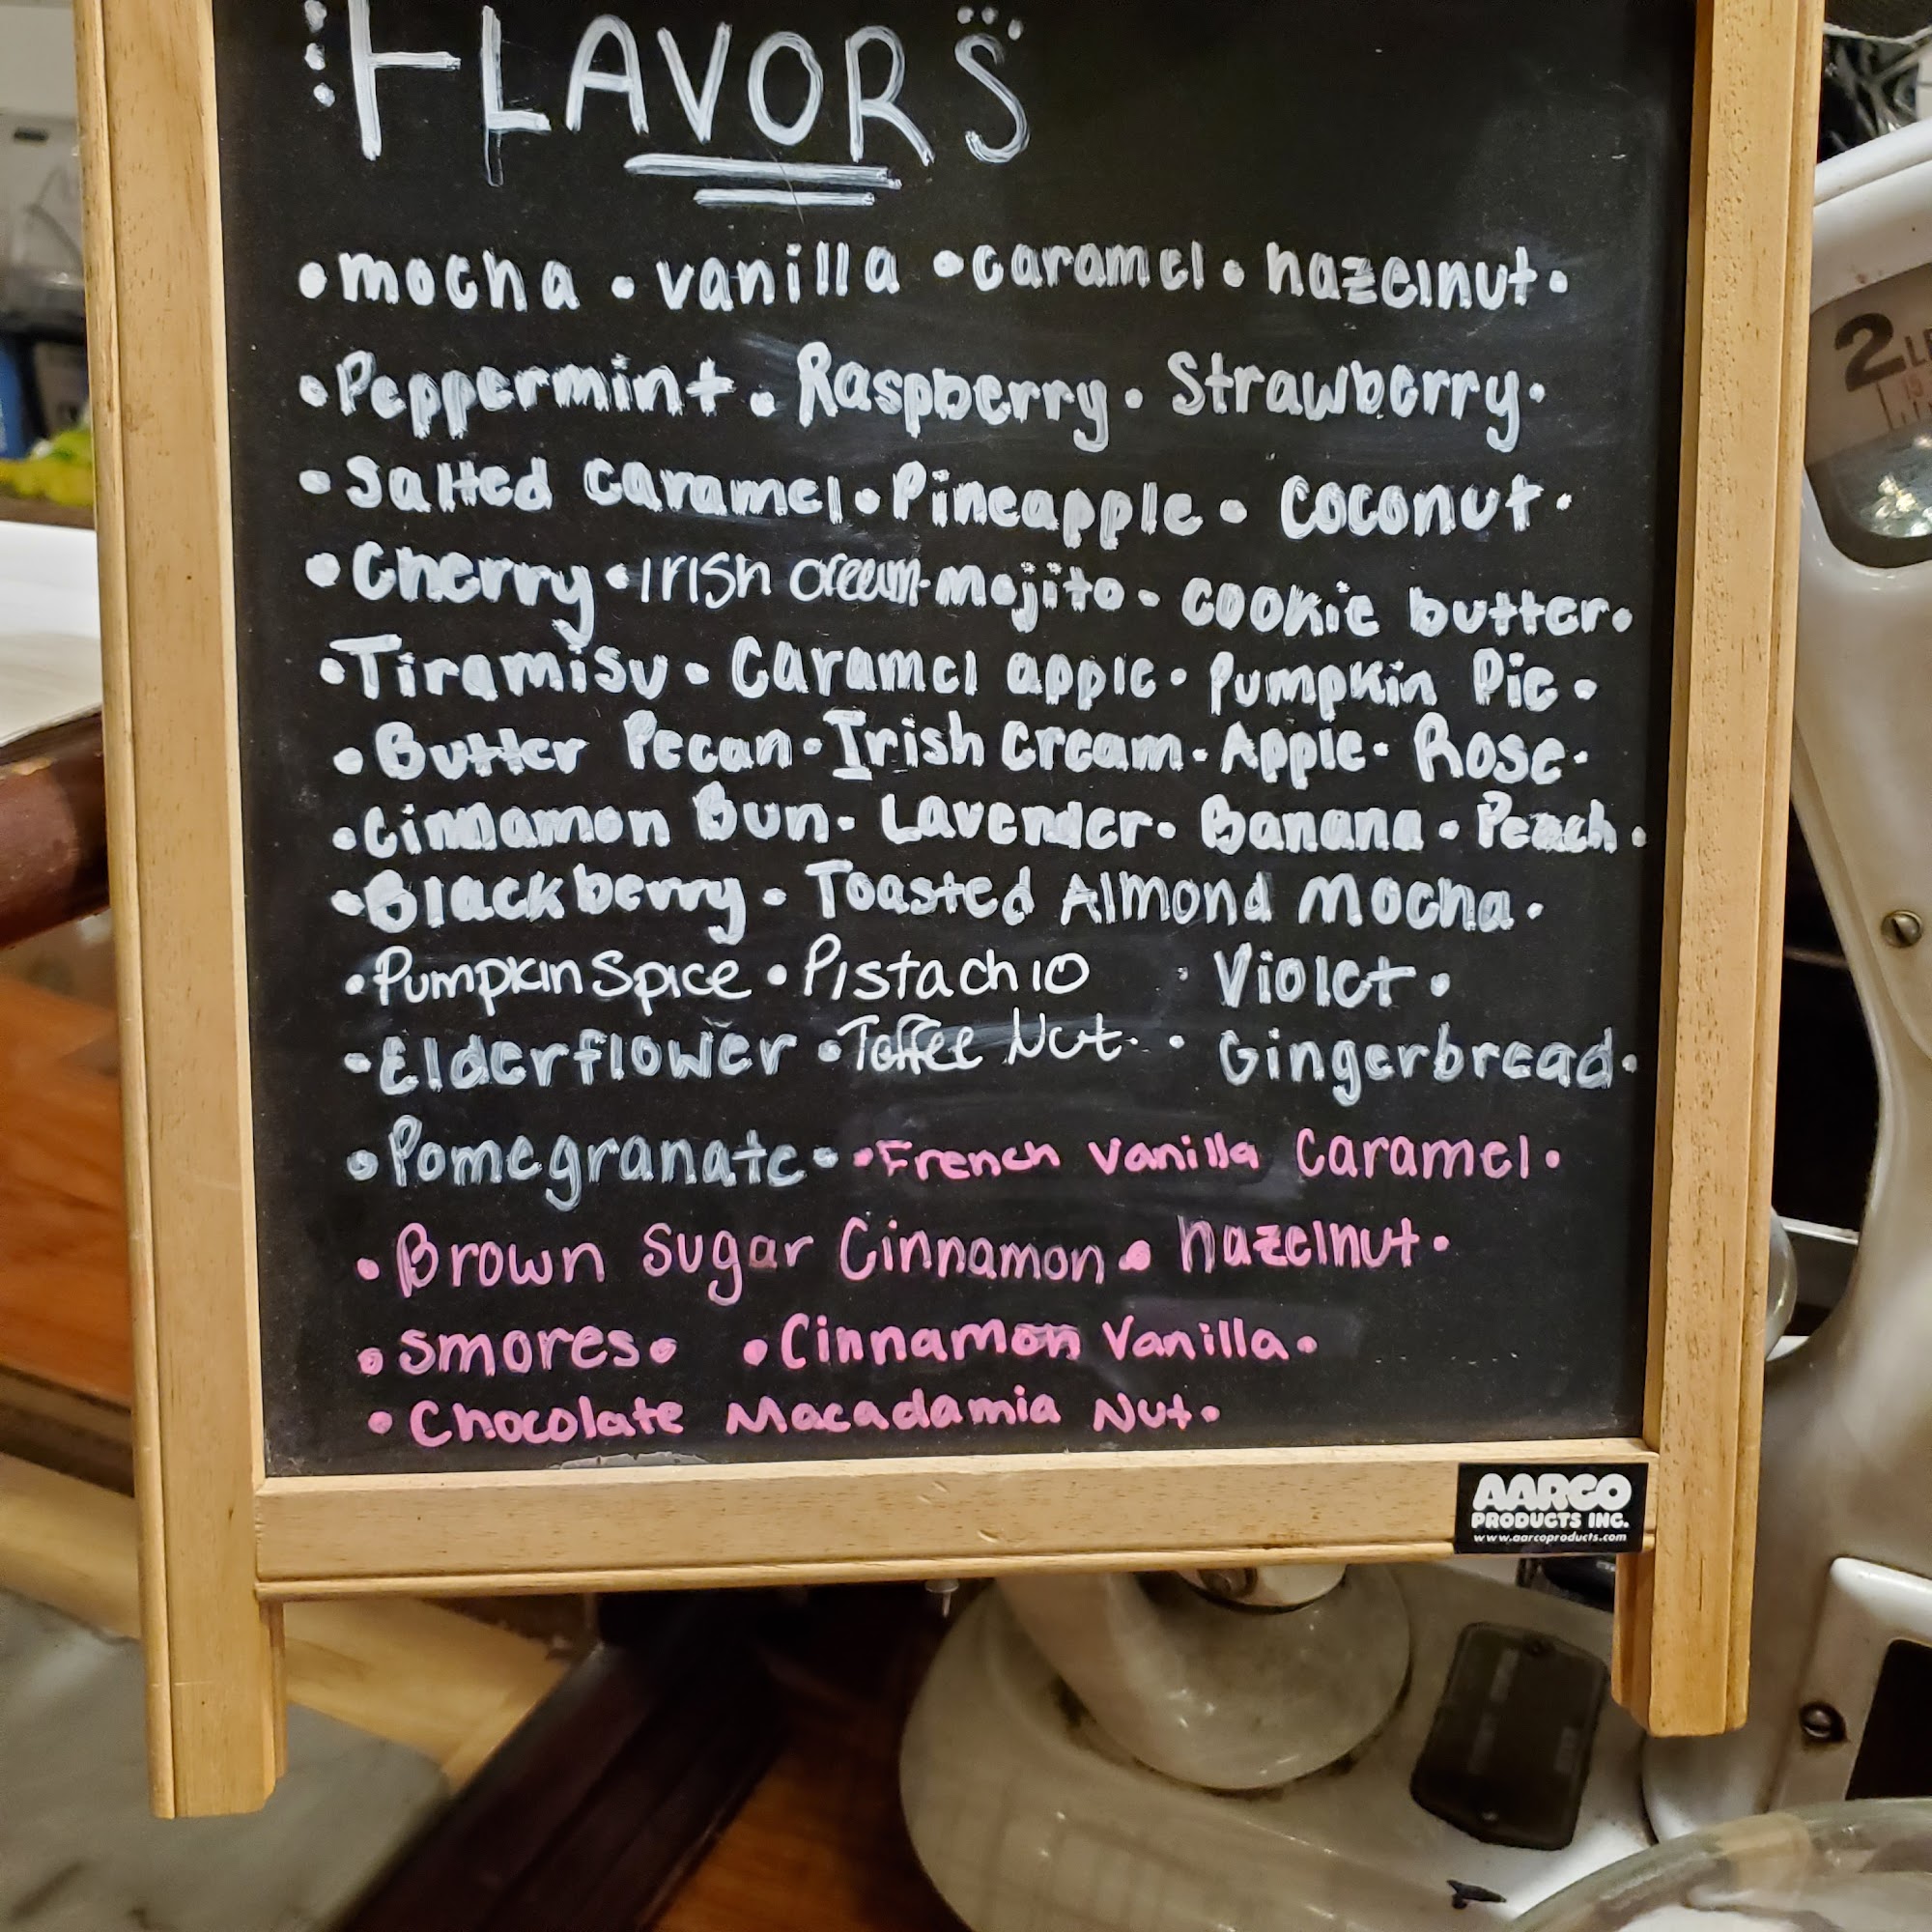 FLAVORS
•mocha • vanilla •caramel • hazelnut•
•Peppermint • Raspberry • Strawberry•
•Salted caramel•Pineapple • Coconut•
•Cherry •Irish cream•mojito• cookie butter•
•Tiramisu • Caramel apple • Pumpkin Pie •
•Butter Pecan•Irish Cream•Apple• Rose•
•Cinnamon Bun• Lavender• Banana • Peach•
•Blackberry • Toasted Almond Mocha•
•Pumpkin Spice •Pistachio • Violet•
•Elderflower •Toffee Nut• • Gingerbread•
•Pomegranate• •French Vanilla Caramel•
•Brown Sugar Cinnamon • hazelnut•
•smores• •Cinnamon Vanilla•
•Chocolate Macadamia Nut•
AARCO
PRODUCTS INC.
www.aarcoproducts.com
2